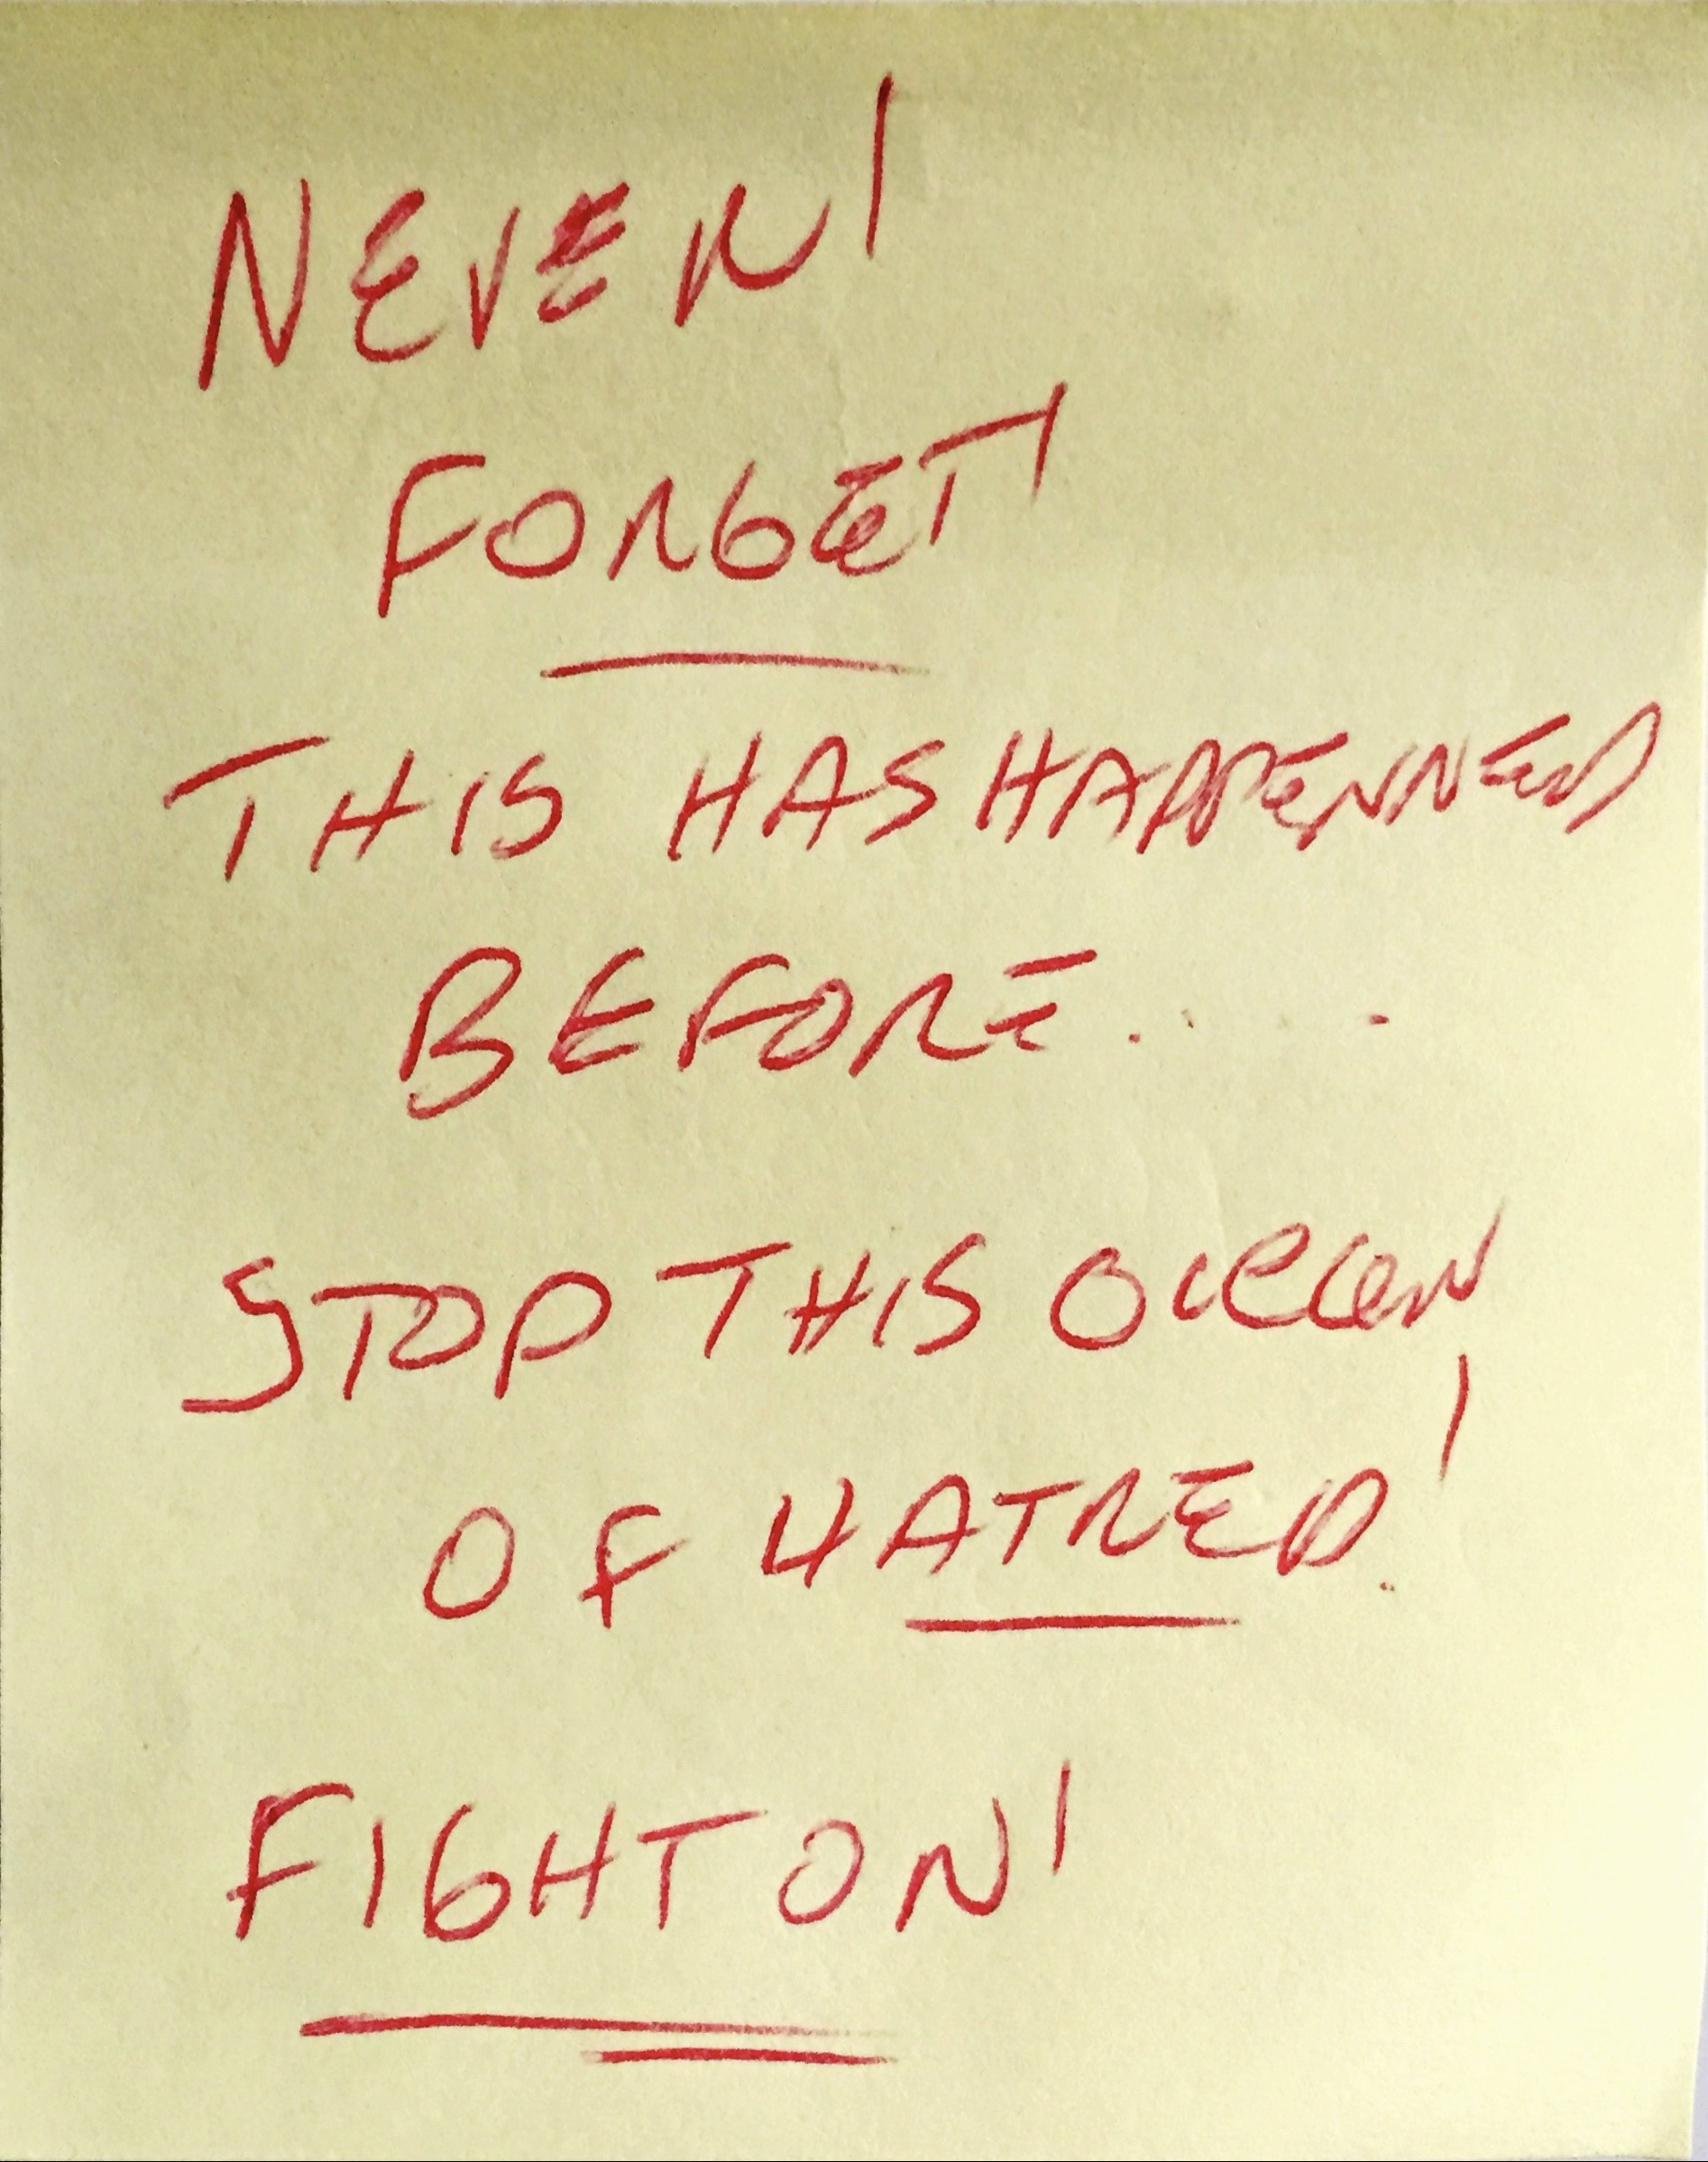 NEVER!
FORGET!
THIS HAS HAPPENNED
BEFORE....
STOP THIS OCEAN
OF HATRED!
FIGHT ON!